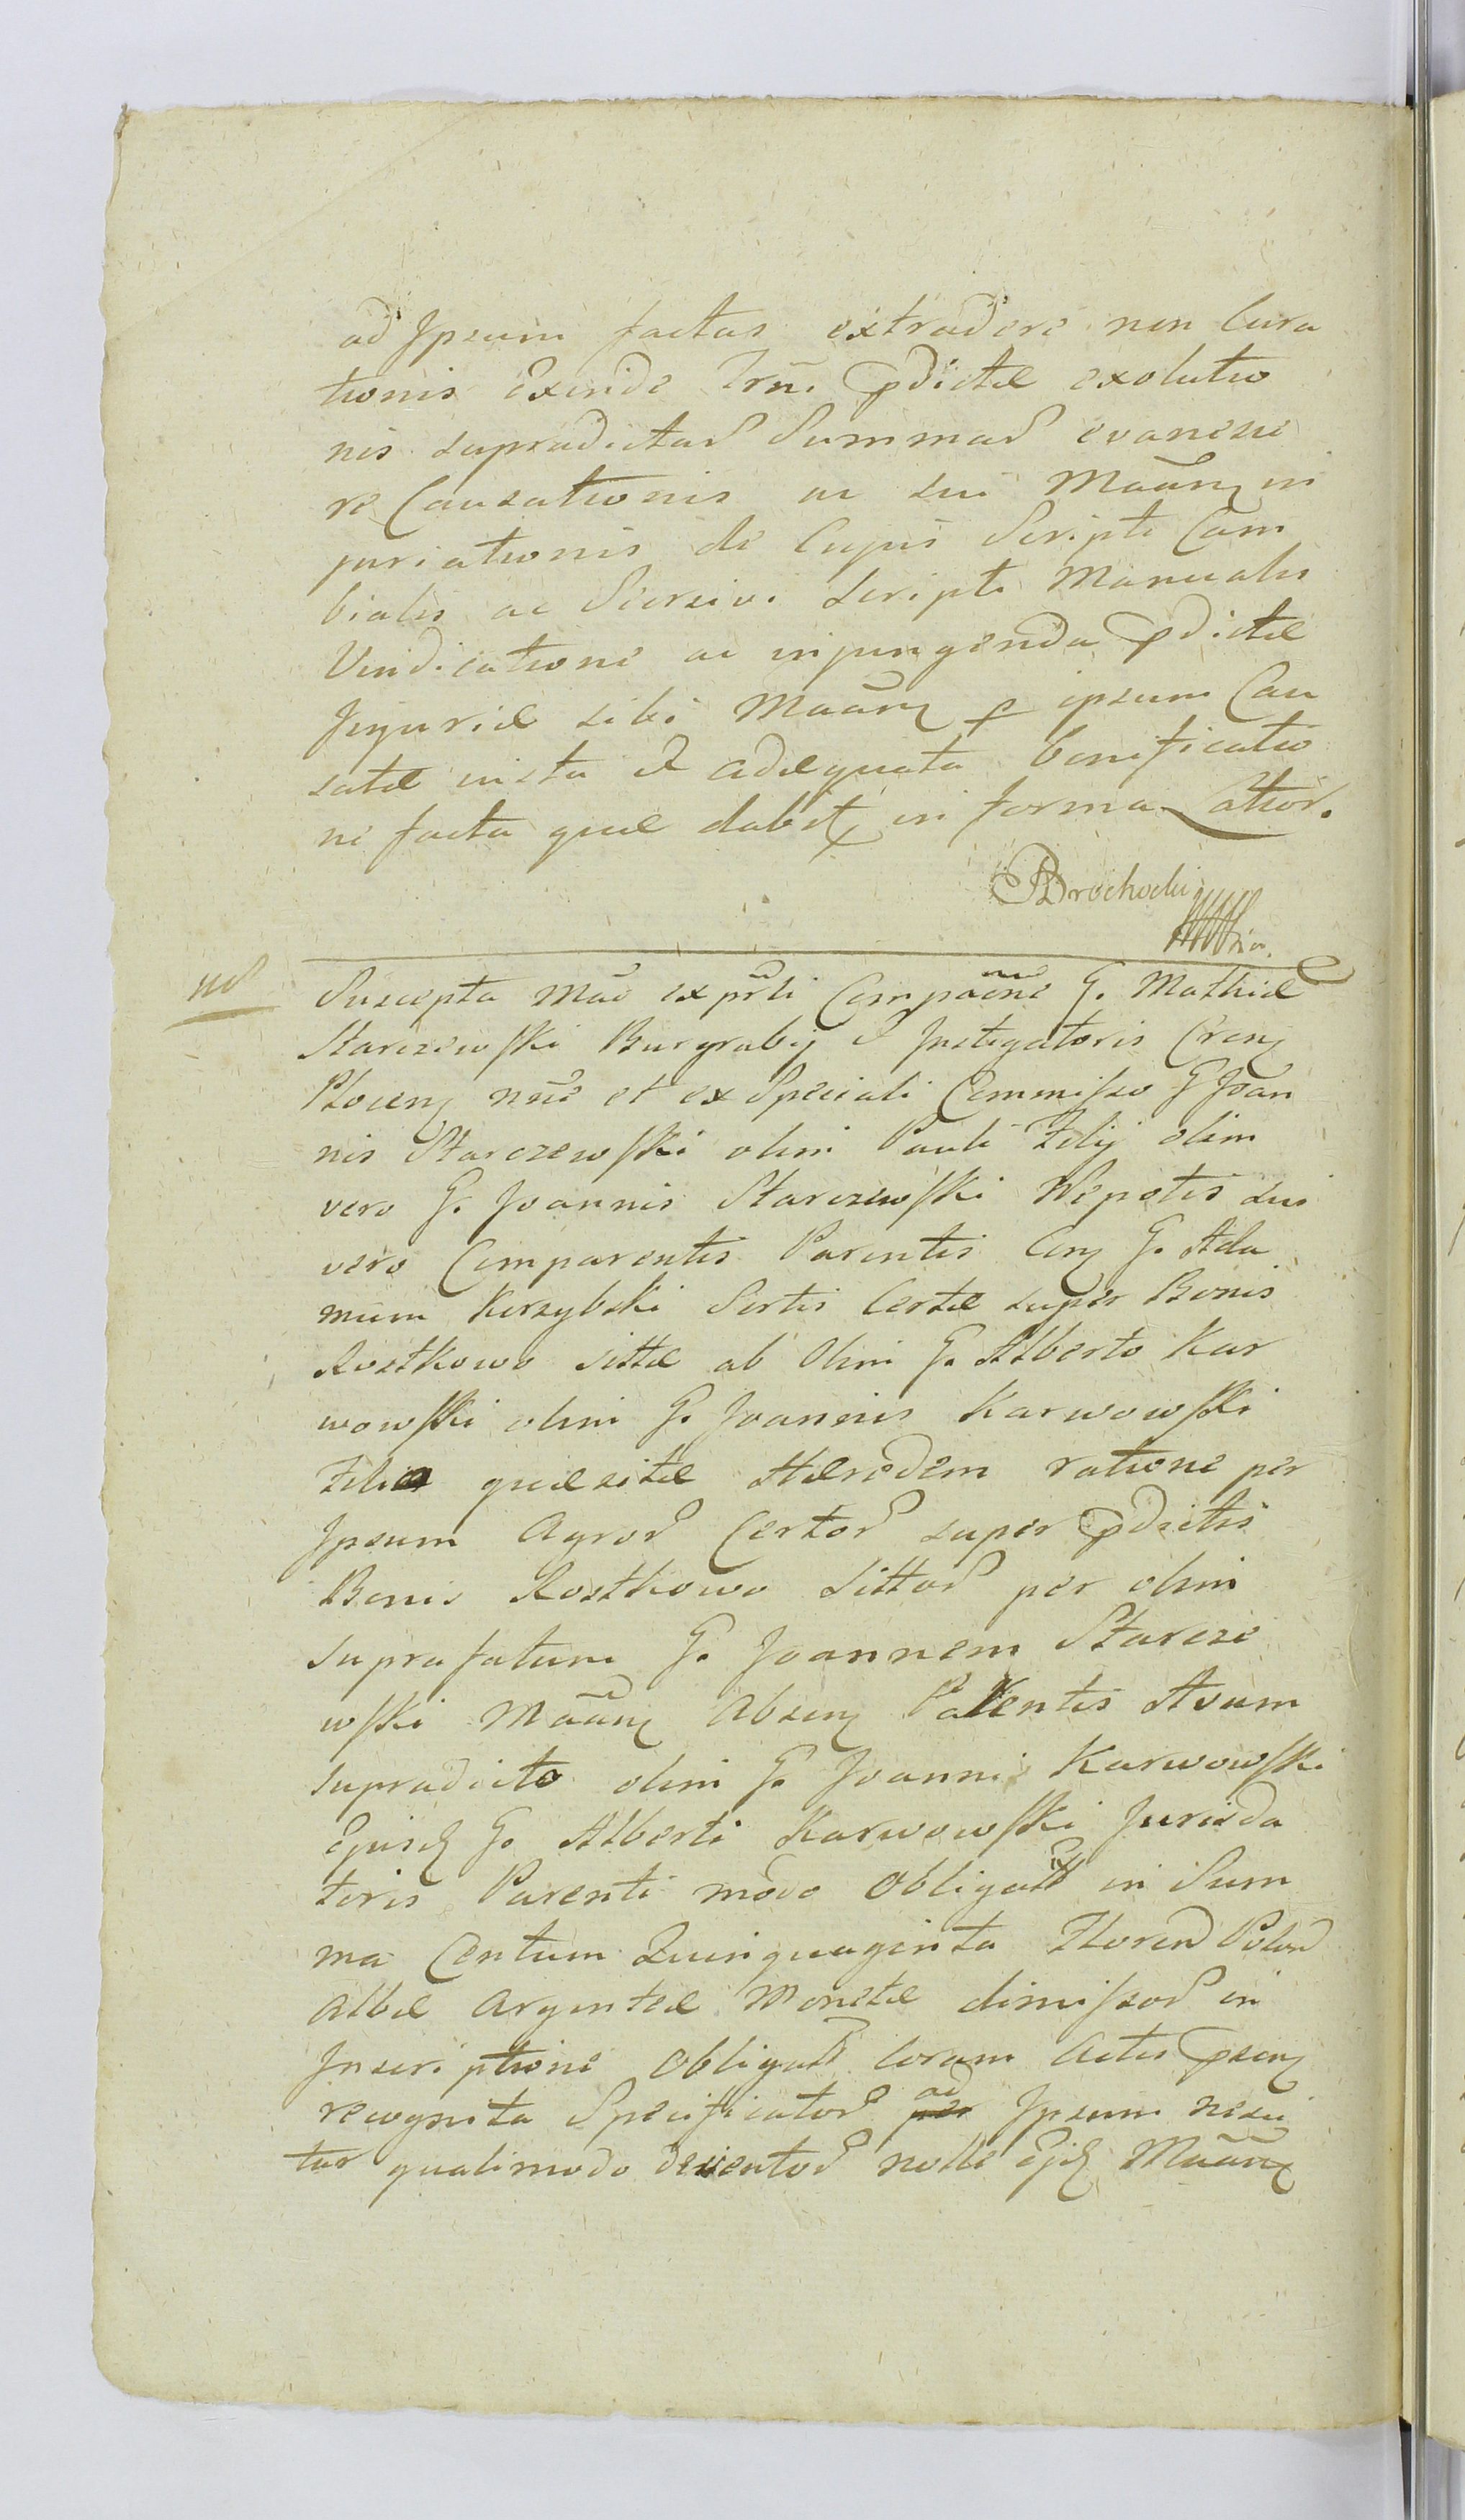 ad Ipsum factas extradere non Cura
tionis exinde Trn. pdictæ exolutio
nis supradictar Summar evanesce
re Causationis ac sui Maānz in
juriationis de Cujus Scripti Cam
bialis ac Scripti Manualis
Vindicatione ac injungenda pdictæ
Injuriæ sibi Maānz p ipsum Cau
satæ iusta et adæquata bonificatio
ne facta quæ dabit in forma Lātior.
Brochocki
Suscepta Mae ex prti Compaōne G. Mathiæ
Starczewski Burgrabij et Instigatoris Crenz
Plocenz nōe et ex Speciali Commisso G Joan
nis Starczewski olim Pauli Filij olim
vero G. Joannis Starczewski Nepotis sui
vero Comparentis Parentis Conz G. Ada
mum Korzybski Sortis Certæ super Bonis
Rostkowo sittæ ab Olim G. Alberto Kar
wowski olim G. Joannis Karwowski
Filio quæsitæ Hæredem ratione per
Ipsum Agror Certor super pdictis
Bonis Rostkowo Sittor per olim
suprafatum G. Joannem Starcze
wski Maānz Absenz Parentis Avum
supradicto olim G. Joanni Karwowski
Ejusd G. Alberti Karwowski Jurisda
toris Parenti modo Obligatt in Sum
ma Centum Quinquaginta Floren Polon
albæ Argenteæ Monetæ dimissor in
Inscriptione Obligatt Coram Actis psenz
recognita Specificator per ad Ipsum nesci
tur qualimodo deventor nolle Ejd Maānz